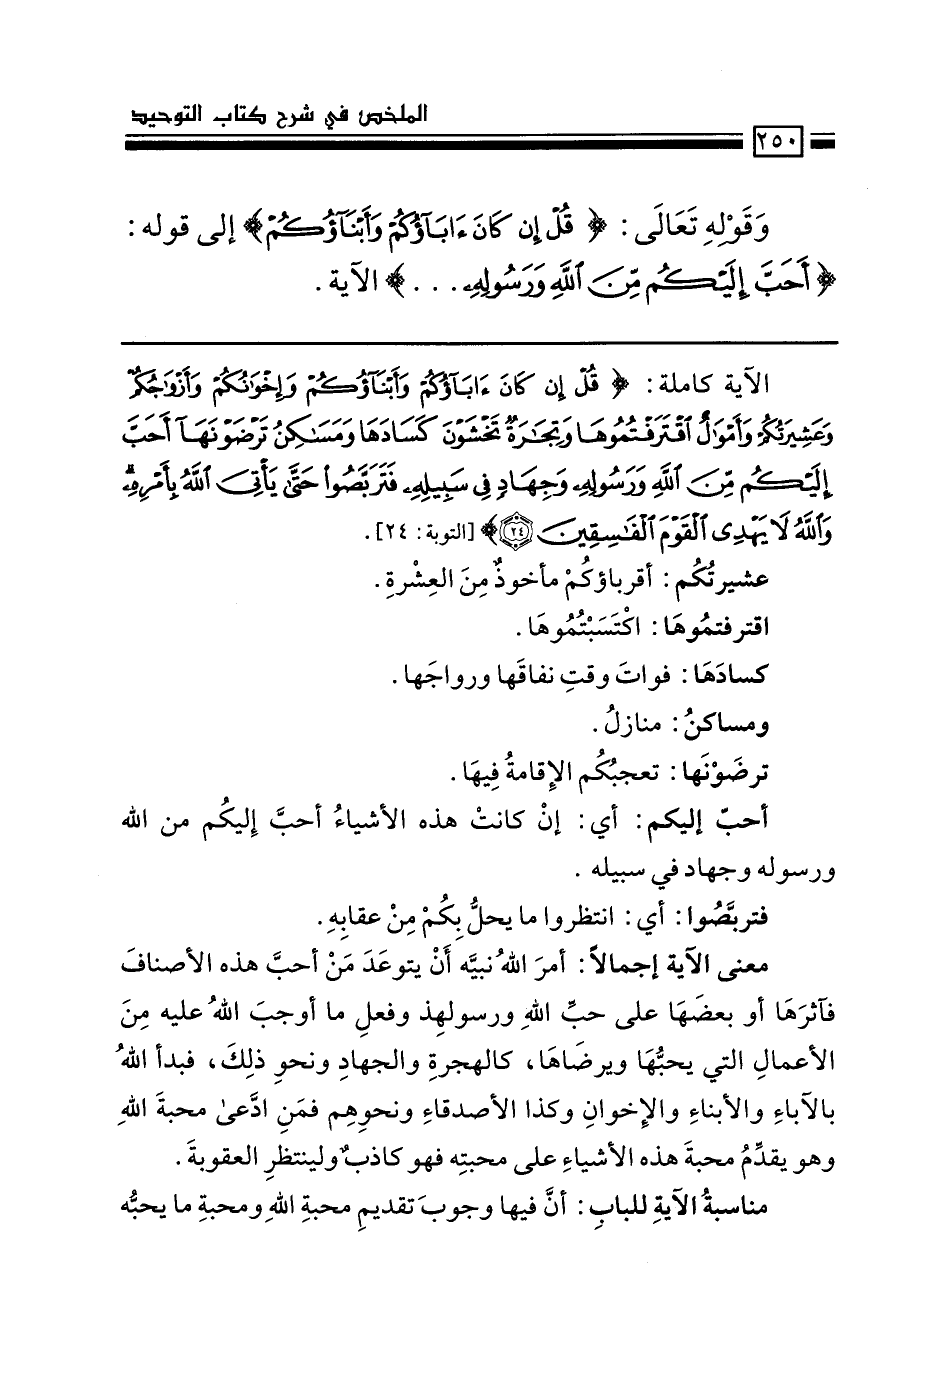 الملخص في شرح كتاب التوحيد
٢٥٠
وَقَوْلِهِ تَعَالَى : ﴿ قُلْ إِن كَانَ ءَابَآؤُكُمْ وَأَبْنَآؤُكُمْ﴾ إلى قوله :
﴿ أَحَبَّ إِلَيْكُم مِّنَ ٱللَّهِ وَرَسُولِهِۦ . . . ﴾ الآية .
الآية كاملة : ﴿ قُلْ إِن كَانَ ءَابَآؤُكُمْ وَأَبْنَآؤُكُمْ وَإِخْوَٰنُكُمْ وَأَزْوَٰجُكُمْ
وَعَشِيرَتُكُمْ وَأَمْوَٰلٌ ٱقْتَرَفْتُمُوهَا وَتِجَٰرَةٌ تَخْشَوْنَ كَسَادَهَا وَمَسَٰكِنُ تَرْضَوْنَهَآ أَحَبَّ
إِلَيْكُم مِّنَ ٱللَّهِ وَرَسُولِهِۦ وَجِهَادٍ فِى سَبِيلِهِۦ فَتَرَبَّصُوا۟ حَتَّىٰ يَأْتِىَ ٱللَّهُ بِأَمْرِهِۦ ۗ
وَٱللَّهُ لَا يَهْدِى ٱلْقَوْمَ ٱلْفَٰسِقِينَ ٢٤﴾ [التوبة: ٢٤].
عشيرتُكُم : أقرباؤكُمْ مأخوذٌ مِنَ العِشْرةِ .
اقترفتمُوهَا : اكْتَسَبْتُمُوهَا .
كسادَهَا : فواتَ وقتِ نفاقَها ورواجَها .
ومساكنُ : منازلُ .
ترضَوْنَها : تعجبُكُم الإقامةُ فِيهَا .
أحبّ إليكم : أي : إنْ كانتْ هذه الأشياءُ أحبَّ إليكُم من الله
ورسوله وجهاد في سبيله .
فتربَّصُوا : أي : انتظروا ما يحلُّ بِكُمْ مِنْ عقابِهِ .
معنى الآية إجمالاً : أمرَ اللهُ نبيَّه أَنْ يتوعَدَ مَنْ أحبَّ هذه الأصنافَ
فآثرَهَا أو بعضَهَا على حبِّ اللهِ ورسولهِذ وفعلِ ما أوجبَ اللهُ عليه مِنَ
الأعمالِ التي يحبُّهَا ويرضَاهَا، كالهجرةِ والجهادِ ونحوِ ذلِكَ، فبدأ اللهُ
بالآباءِ والأبناءِ والإخوانِ وكذا الأصدقاءِ ونحوِهِم فمَنِ ادَّعىٰ محبةَ اللهِ
وهو يقدِّمُ محبةَ هذه الأشياءِ على محبتِه فهو كاذبٌ ولينتظرِ العقوبةَ .
مناسبةُ الآيةِ للبابِ : أنَّ فيها وجوبَ تقديمِ محبةِ اللهِ ومحبةِ ما يحبُّه